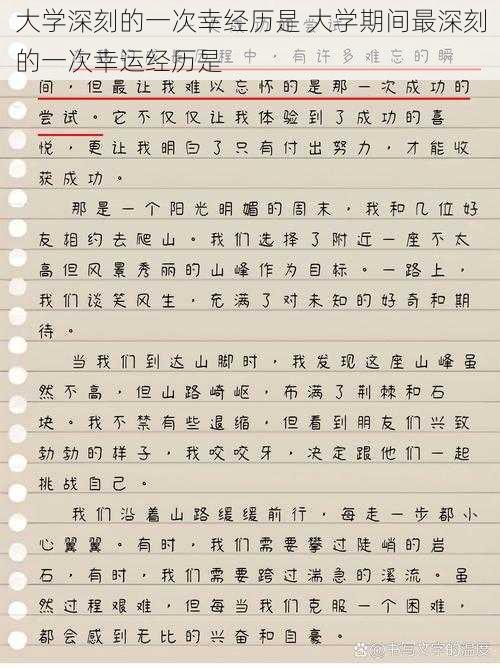 大学深刻的一次幸经历是 大学期间最深刻
的一次幸运经历是
程中，有许多难忘的瞬
间，但最让我难以忘怀的是那一次成功的
尝试。它不仅仅让我体验到了成功的喜
悦，更让我明白了只有付出努力，才能收
获成功。
那是一个阳光明媚的周末，我和几位好
友相约去爬山。我们选择了附近一座不太
高但风景秀丽的山峰作为目标。一路上，
我们谈笑风生，充满了对未知的好奇和期
待。
当我们到达山脚时，我发现这座山峰虽
然不高，但山路崎岖，布满了荆棘和石
块。我不禁有些退缩，但看到朋友们兴致
勃勃的样子，我咬咬牙，决定跟他们一起
挑战自己。
我们沿着山路缓缓前行，每走一步都小
心翼翼。有时，我们需要攀过陡峭的岩
石，有时，我们需要跨过湍急的溪流。虽
然过程艰难，但每当我们克服一个困难，
都会感到无比的兴奋和自豪。
书写文字的温度